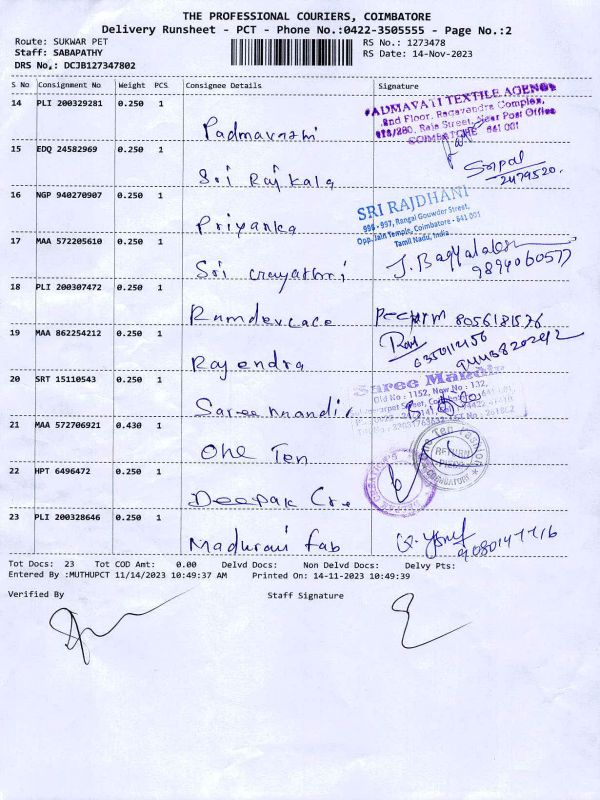 THE PROFESSIONAL COURIERS, COIMBATORE
Delivery Runsheet - PCT - Phone No.:0422-3505555 - Page No.:2
Route: SUKWAR PET
Staff: SABAPATHY
DRS No.: DCJB127347802
RS No.: 1273478
RS Date: 14-Nov-2023
S No Consignment No Weight PCS Consignee Details Signature
14 PLI 200329281 0.250 1
Padmavathi
PADMAVATI TEXTILE AGENCY
2nd Floor, Ragavendra Complex,
Raja Street, Near Post Office
COIMBATORE 641 001
15 EDQ 24582969 0.250 1
Sri Rajkala
2479520.
16 NGP 940270907 0.250 1
Priyanka
SRI RAJDHANI
996 - 997, Rangai Gowder Street,
Opp. Jain Temple, Coimbatore - 641 001
Tamil Nadu, India
17 MAA 572205610 0.250 1
Sri
J. Bagyalakshmi
9894060577
18 PLI 200307472 0.250 1
Ramdev Lace
8056181576
19 MAA 862254212 0.250 1
Rajendra
Ravi
20 SRT 15110543 0.250 1
Saree Mandir
Saree Mandir
Old No : 1152, New No : 132,
21 MAA 572706921 0.430 1
One Ten
The Ten Fashion
COIMBATORE
22 HPT 6496472 0.250 1
Deepak Cre
23 PLI 200328646 0.250 1
Madurani fab
Tot Docs: 23 Tot COD Amt: 0.00 Delvd Docs: Non Delvd Docs: Delvy Pts:
Entered By :MUTHUPCT 11/14/2023 10:49:37 AM Printed On: 14-11-2023 10:49:39
Verified By Staff Signature